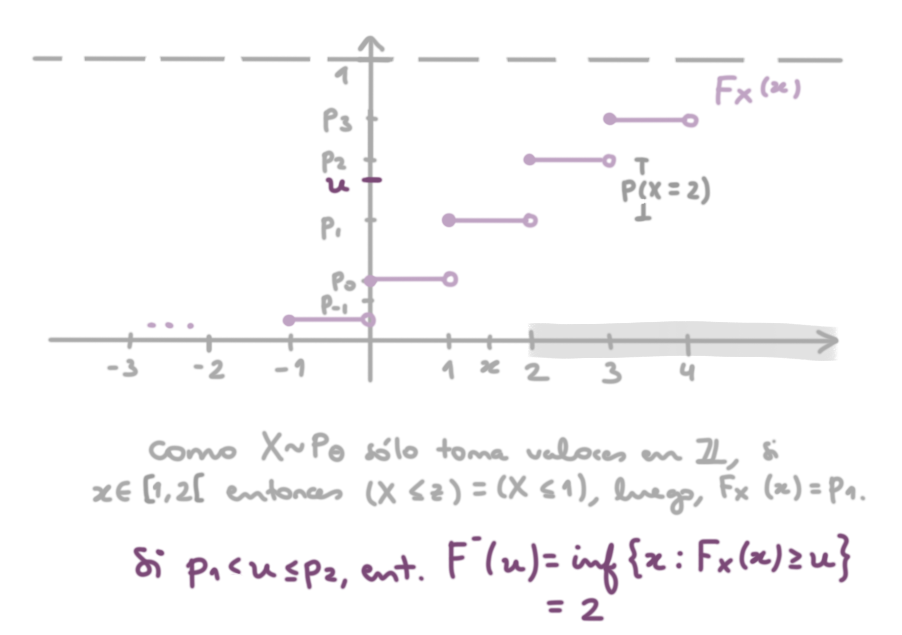 1
F_X(x)
p_3
p_2
u
P(X = 2)
p_1
p_0
p_{-1}
. . . .
-3 -2 -1 1 x 2 3 4
Como X~P_θ sólo toma valores en ℤ, si
x∈[1,2[ entonces (X ≤ z) = (X ≤ 1), luego, F_X(x) = p_1.
Si p_1 < u ≤ p_2, ent. F^-(u) = inf {x : F_X(x) ≥ u}
= 2